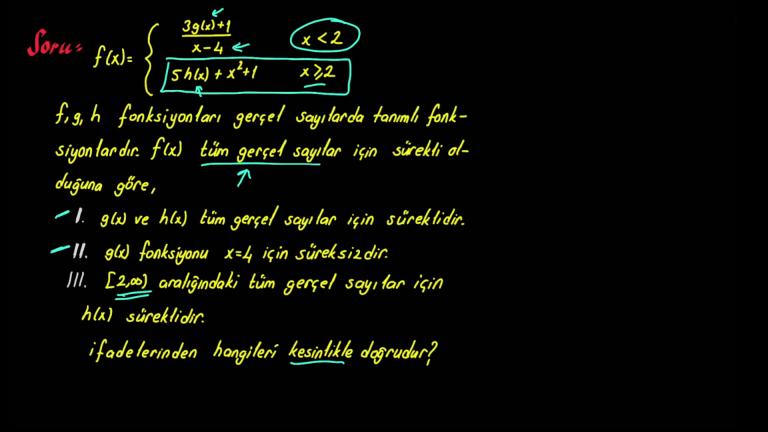 Soru= f(x)= { 3g(x)+1 / x-4   x < 2
5h(x) + x²+1   x ≥ 2
f, g, h fonksiyonları gerçel sayılarda tanımlı fonk-
siyonlardır. f(x) tüm gerçel sayılar için sürekli ol-
duğuna göre,
I. g(x) ve h(x) tüm gerçel sayılar için süreklidir.
II. g(x) fonksiyonu x=4 için süreksizdir.
III. [2,∞) aralığındaki tüm gerçel sayılar için
h(x) süreklidir.
ifadelerinden hangileri kesinlikle doğrudur?